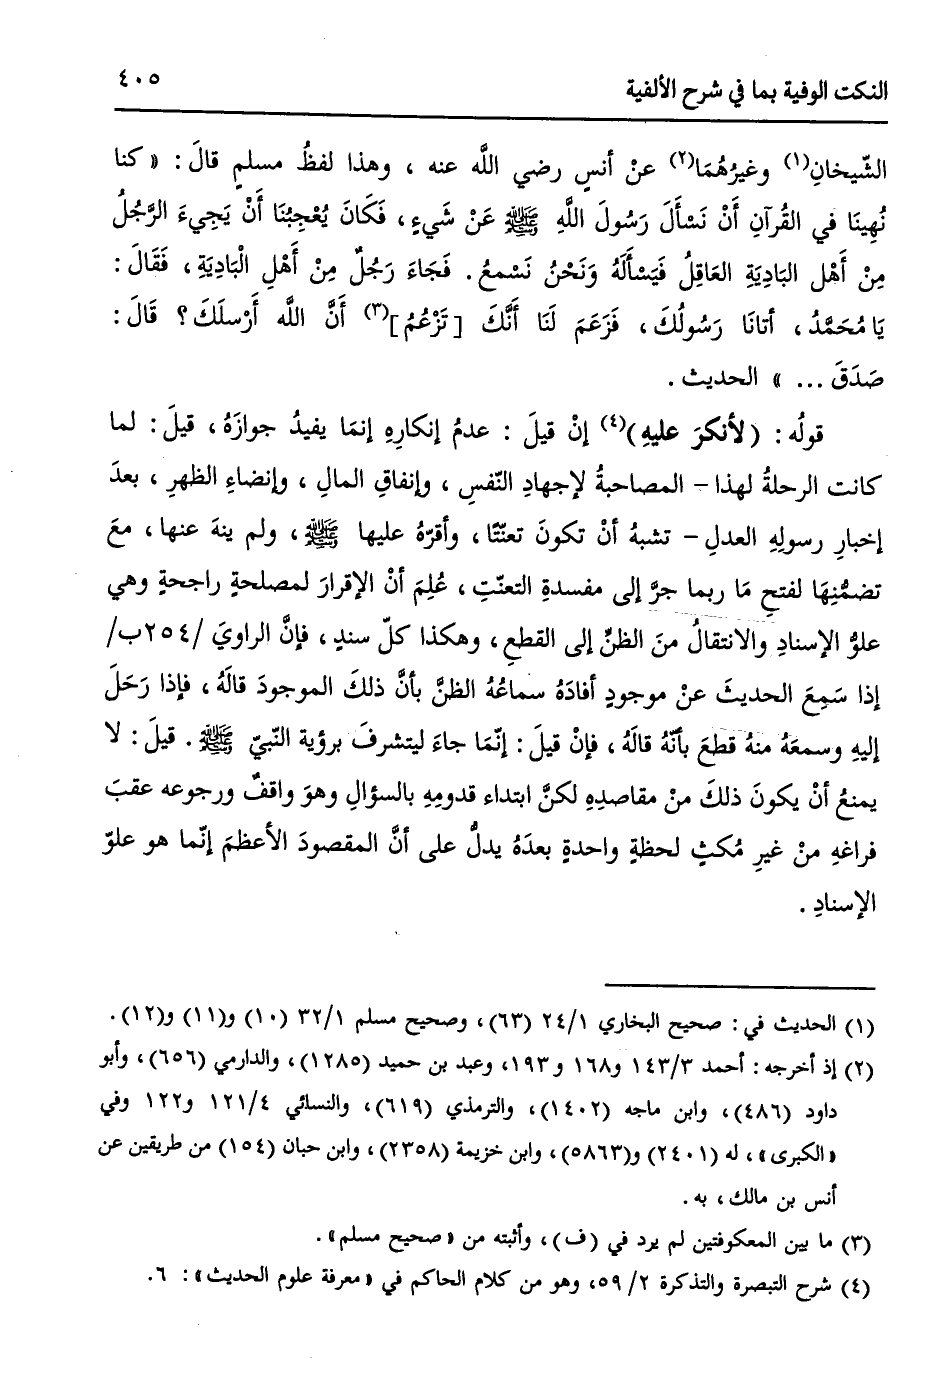 النكت الوفية بما في شرح الألفية ٤٠٥
الشّيخانِ(١) وغيرُهُمَا(٢) عنْ أنسٍ رضي اللَّه عنه ، وهذا لفظُ مسلمٍ قالَ : « كنا
نُهِينَا في القُرآنِ أَنْ نَسْأَلَ رَسُولَ اللَّهِ ﷺ عَنْ شَيءٍ ، فَكَانَ يُعْجِبُنَا أَنْ يَجِيءَ الرَّجُلُ
مِنْ أَهْلِ البَادِيَةِ العَاقِلُ فَيَسْأَلَهُ وَنَحْنُ نَسْمعُ . فَجَاءَ رَجُلٌ مِنْ أَهْلِ الْبَادِيَةِ ، فَقَالَ :
يَا مُحَمَّدُ ، أتانَا رَسُولُكَ ، فَزَعَمَ لَنَا أَنَّكَ [ تَزْعُمُ ](٣) أَنَّ اللَّه أَرْسلَكَ ؟ قَالَ :
صَدَقَ ... » الحديث .
قولُه : (لأنكرَ عليهِ)(٤) إنْ قيلَ : عدمُ إنكارِهِ إنمَا يفيدُ جوازَهُ ، قيلَ : لما
كانت الرحلةُ لهذا – المصاحبةُ لإجهادِ النّفسِ ، وإنفاقِ المالِ ، وإنضاءِ الظهرِ ، بعدَ
إخبارِ رسولِهِ العدلِ – تشبهُ أنْ تكونَ تعنّتًا ، وأقرّهُ عليها ﷺ ، ولم ينهَ عنها ، معَ
تضمُّنِهَا لفتحِ مَا ربما جرَّ إلى مفسدةِ التعنّتِ ، عُلِمَ أنْ الإقرارَ لمصلحةٍ راجحةٍ وهي
علوُّ الإسنادِ والانتقالُ منَ الظنِّ إلى القطعِ ، وهكذا كلّ سندٍ ، فإنَّ الراويَ /٢٥٤ب/
إذا سَمِعَ الحديثَ عنْ موجودٍ أفادَهُ سماعُهُ الظنَّ بأنَّ ذلكَ الموجودَ قالَهُ ، فإذا رَحَلَ
إليهِ وسمعَهُ منهُ قطعَ بأنّهُ قالَهُ ، فإنْ قيلَ : إنّمَا جاءَ ليتشرفَ برؤية النّبيّ ﷺ . قيلَ : لا
يمنعُ أنْ يكونَ ذلكَ منْ مقاصدِهِ لكنَّ ابتداء قدومِهِ بالسؤالِ وهوَ واقفٌ ورجوعه عقبَ
فراغهِ منْ غيرِ مُكثٍ لحظةٍ واحدةٍ بعدَهُ يدلُّ على أنَّ المقصودَ الأعظمَ إنّما هو علوّ
الإسنادِ .
(١) الحديث في : صحيح البخاري ٢٤/١ (٦٣)، وصحيح مسلم ٣٢/١ (١٠) و(١١) و(١٢).
(٢) إذ أخرجه : أحمد ١٤٣/٣ و١٦٨ و١٩٣، وعبد بن حميد (١٢٨٥)، والدارمي (٦٥٦)، وأبو
داود (٤٨٦)، وابن ماجه (١٤٠٢)، والترمذي (٦١٩)، والنسائي ١٢١/٤ و١٢٢ وفي
«الكبرى»، له (٢٤٠١) و(٥٨٦٣)، وابن خزيمة (٢٣٥٨)، وابن حبان (١٥٤) من طريقين عن
أنس بن مالك ، به .
(٣) ما بين المعكوفتين لم يرد في (ف)، وأثبته من «صحيح مسلم».
(٤) شرح التبصرة والتذكرة ٥٩/٢، وهو من كلام الحاكم في «معرفة علوم الحديث»: ٦.